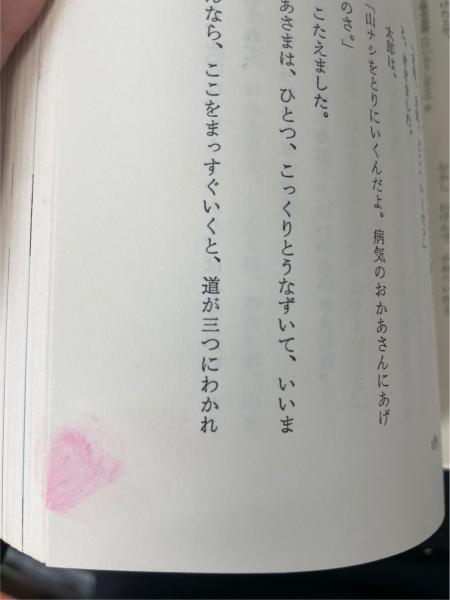 太郎は、
「山ナシをとりにいくんだよ。病気のおかあさんにあげ
のさ。」
こたえました。
あさまは、ひとつ、こっくりとうなずいて、いいま
なら、ここをまっすぐいくと、道が三つにわかれ